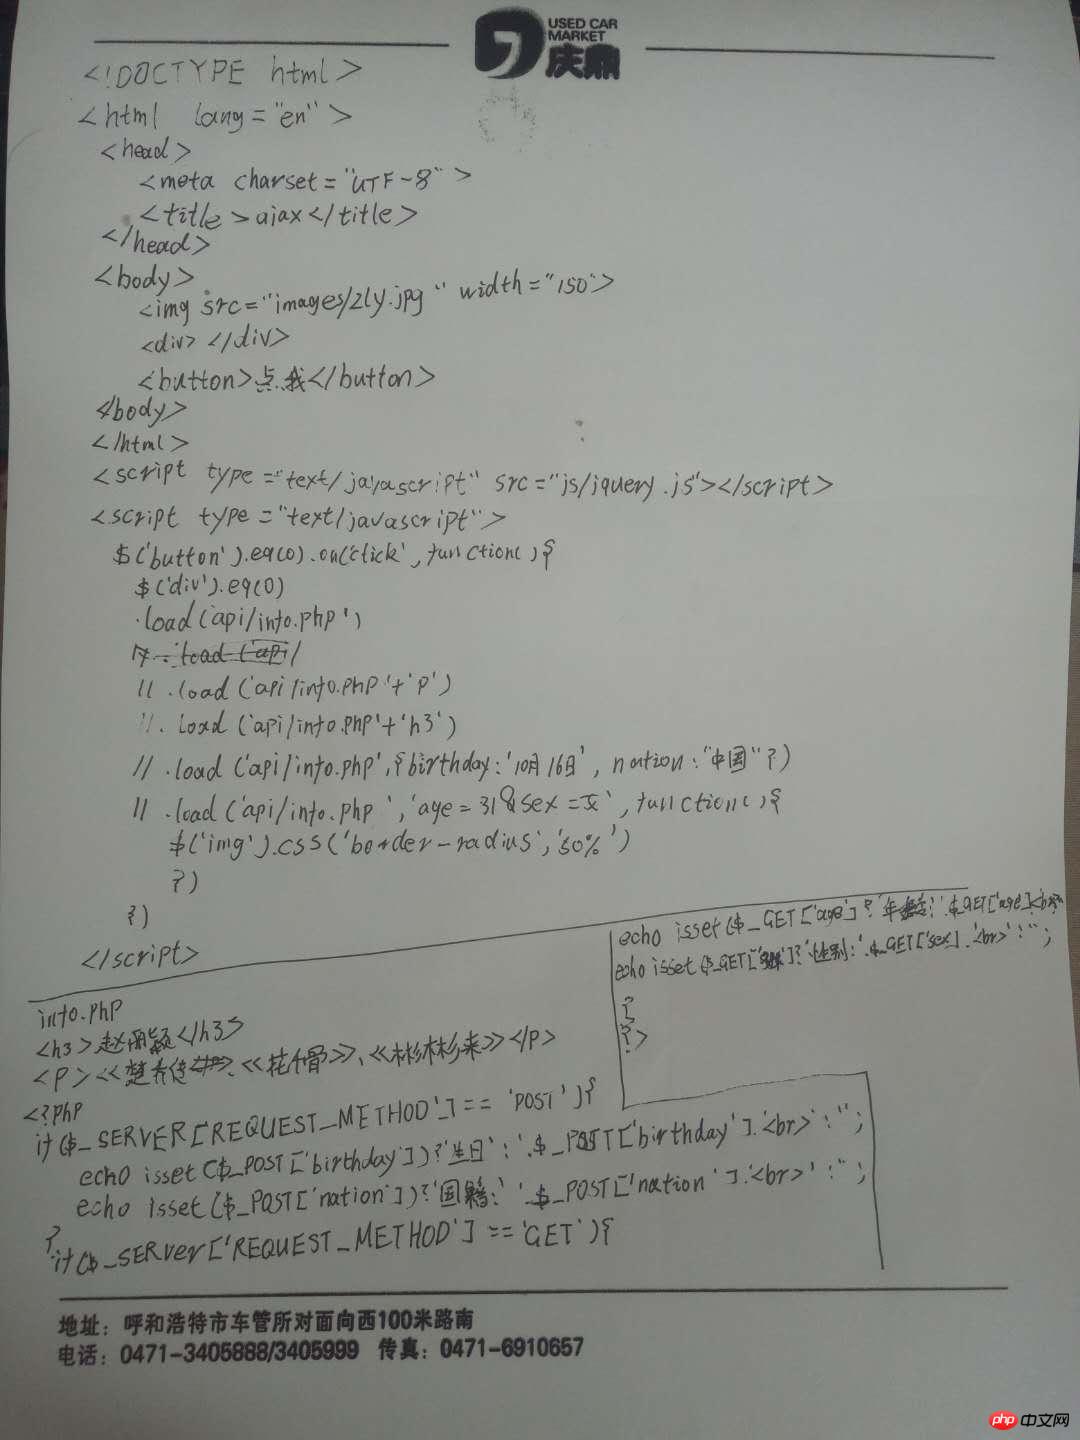 USED CAR
MARKET
庆鼎
<!DOCTYPE html>
<html lang="en">
<head>
<meta charset="UTF-8">
<title>ajax</title>
</head>
<body>
<img src="images/zly.jpg" width="150">
<div></div>
<button>点我</button>
</body>
</html>
<script type="text/javascript" src="js/jquery.js"></script>
<script type="text/javascript">
$('button').eq(0).on('click',function(){
$('div').eq(0)
.load('api/info.php')
.load('api/
// .load('api/info.php'+'p')
//. load('api/info.php'+'h3')
// .load('api/info.php',{birthday:'10月16日', nation:"中国"})
// .load('api/info.php ','age=31&sex=女',function(){
$('img').css('border-radius','50%')
})
})
</script>
echo isset($_GET['age']?'年龄:'.$_GET['age'].'<br>
echo isset($_GET[']?'性别:'.$_GET['sex'].'<br>':'';
}
?>
info.php
<h3>赵丽颖</h3>
<p><<楚乔传、<<花千骨>>、<<杉杉来>></p>
<?php
if($_SERVER['REQUEST_METHOD']=='POST'){
echo isset($_POST['birthday'])?'生日':'.$_POST['birthday'].'<br>':'';
echo isset($_POST['nation'])?'国籍:'.$_POST['nation'].'<br>':'';
}
if($_SERver['REQUEST_METHOD']=='GET'){
地址：呼和浩特市车管所对面向西100米路南
电话：0471-3405888/3405999 传真：0471-6910657
php中文网